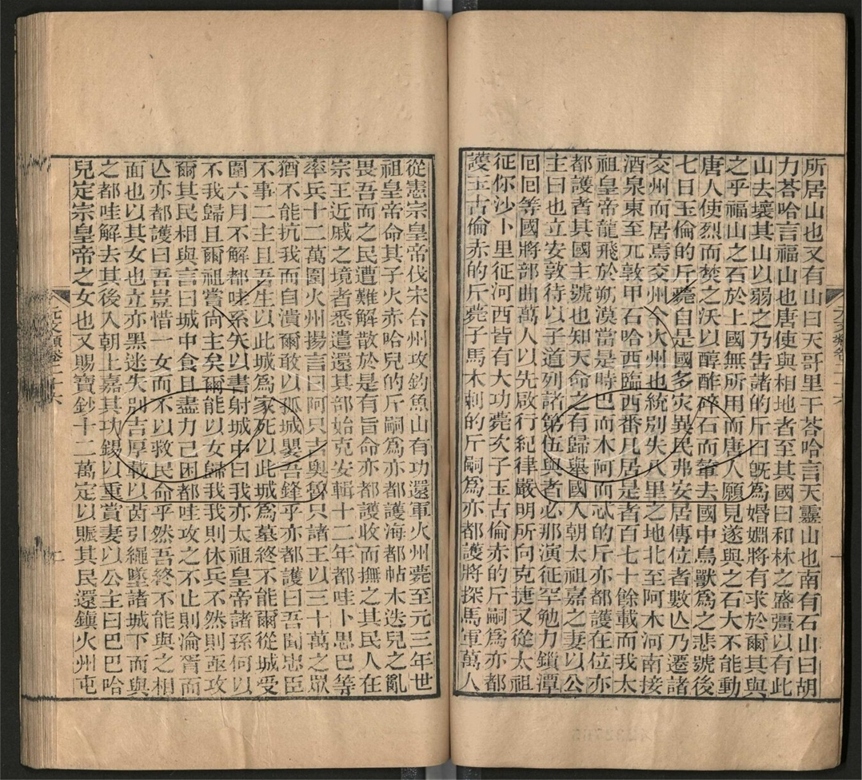 所居山也又有山曰天哥里干荅哈言天靈山也南有石山曰胡
力荅哈言福山也唐使與相地者至其國曰和林之盛彊以有此
山去壞其山以弱之乃告諸的斤曰旣為婚姻將有求於爾其與
之乎福山之石於上國無所用而唐人願見遂與之石大不能動
唐人使烈而焚之沃以醇酢碎石而輦去國中鳥獸為之悲號後
七日玉倫的斤薨自是國多灾異民弗安居傳位者數亾乃遷諸
交州而居焉交州今火州也統別失八里之地北至阿木河南接
酒泉東至元敦甲石哈西臨西番凡居是者百七十餘載而我太
祖皇帝龍飛於朔漠當是時巴而木阿而忒的斤亦都護在位亦
都護者其國主號也知天命之有歸舉國入朝太祖嘉之妻以公
主曰也立安敦待以子道列諸第伍與者必那演征罕勉力鎖潭
回回等國將部曲萬人以先啟行紀律嚴明所向克捷又從太祖
征你沙卜里征河西皆有大功薨次子玉古倫赤的斤嗣為亦都
護玉古倫赤的斤薨子馬木剌的斤嗣為亦都護將探馬軍萬人
從憲宗皇帝伐宋合州攻釣魚山有功還軍火州薨至元三年世
祖皇帝命其子火赤哈兒的斤嗣為亦都護海都帖木迭兒之亂
畏吾而之民遭難解散於是有旨命亦都護收而撫之其民人在
宗王近戚之境者悉遣還其部始克安輯十二年都哇卜思巴等
率兵十二萬圍火州揚言曰阿只吉奧魯只諸王以三十萬之眾
猶不能抗我而自潰爾敢以孤城嬰吾鋒乎亦都護曰吾聞忠臣
不事二主且吾生以此城為家死以此城為墓終不能爾從城受
圍六月不解都哇系矢以書射城中曰我亦太祖皇帝諸孫何以
不我歸且爾祖嘗尚主矣爾能以女歸我我則休兵不然則亟攻
爾其民相與言曰城中食且盡力已困都哇攻之不止則淪胥而
亾亦都護曰吾豈惜一女而不以救民命乎然吾終不能與之相
面也以其女也立亦黑迷失別吉厚載以茵引繩墜諸城下而與
之都哇解去其後入朝上嘉其功錫以重賞妻以公主曰巴巴哈
兒定宗皇帝之女也又賜寶鈔十二萬定以賑其民還鎮火州屯
元文類卷二十六